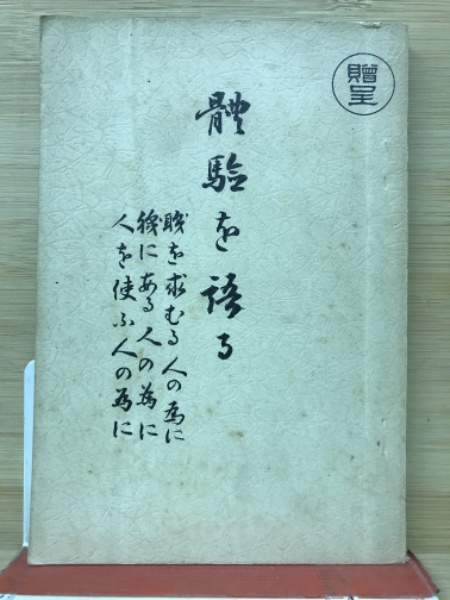 贈呈
體驗を語る
職を求むる人の為に
職にある人の為に
人を使ふ人の為に